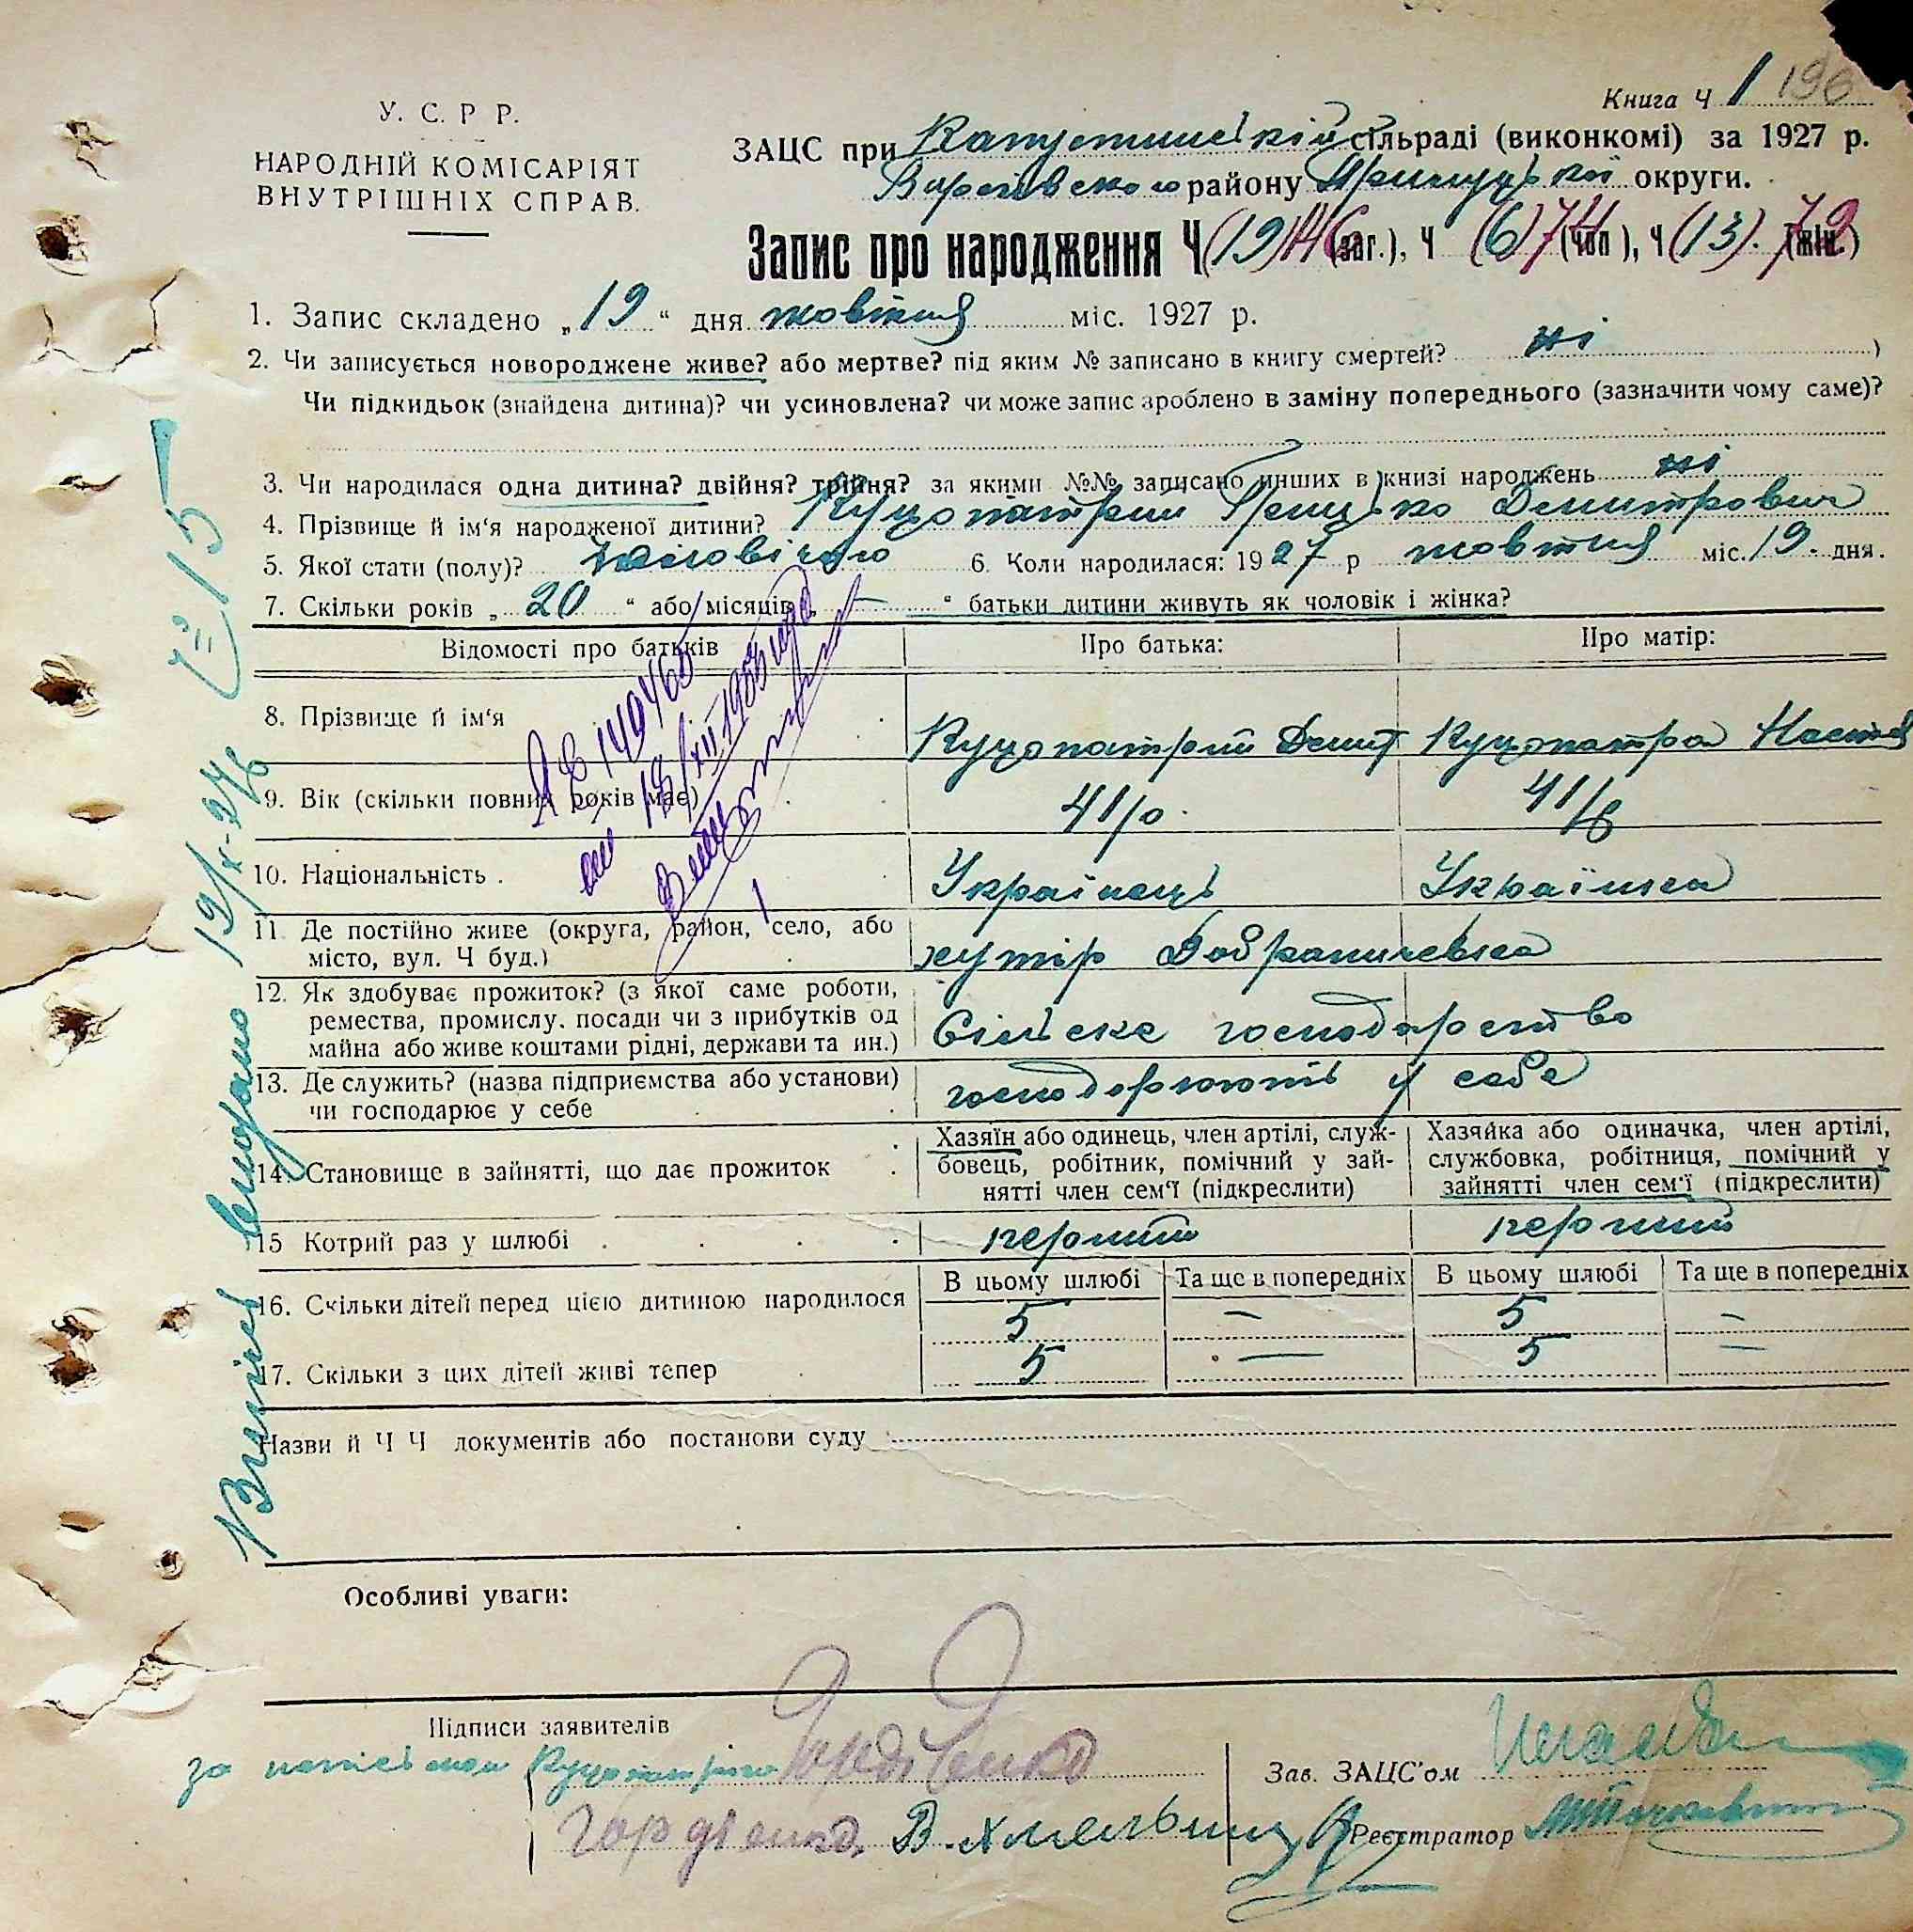 Книга Ч 1 196
У. С. Р Р.
НАРОДНІЙ КОМІСАРІЯТ
ВНУТРІШНІХ СПРАВ.
ЗАЦС при Капустинській сільраді (виконкомі) за 1927 р.
району Прилуцької округи.
Запис про народження Ч (19) 146 (заг.), Ч (6) 74 (чол), Ч (13). 72 (жін.)
1. Запис складено „19“ дня жовтня міс. 1927 р.
2. Чи записується новороджене живе? або мертве? під яким № записано в книгу смертей? ні )
Чи підкидьок (знайдена дитина)? чи усиновлена? чи може запис зроблено в заміну попереднього (зазначити чому саме)?
3. Чи народилася одна дитина? двійня? трійня? за якими №№ записано инших в книзі народжень ні
4. Прізвище й ім‘я народженої дитини? Куцопатрий Грицько Демитрович
5. Якої стати (полу)? чоловічого 6. Коли народилася: 1927 р жовтня міс. 19. дня.
7. Скільки років „20“ або місяців „—“ батьки дитини живуть як чоловік і жінка?
Відомості про батьків Про батька: Про матір:
8. Прізвище й ім‘я Куцопатрий Демит Куцопатра Настя
9. Вік (скільки повних років має) 41/р. 41/р
10. Національність . Українець Українка
11. Де постійно живе (округа, район, село, або
місто, вул. Ч буд.) хутір Добраничевка
12. Як здобуває прожиток? (з якої саме роботи,
ремества, промислу. посади чи з прибутків од
майна або живе коштами рідні, держави та ин.) Сільське господарство
13. Де служить? (назва підприємства або установи)
чи господарює у себе господорюють у себе
14. Становище в зайнятті, що дає прожиток
Хазяїн або одинець, член артілі, служ-
бовець, робітник, помічний у зай-
нятті член сем‘ї (підкреслити)
Хазяйка або одиначка, член артілі,
службовка, робітниця, помічний у
зайнятті член сем‘ї (підкреслити)
15 Котрий раз у шлюбі перший перший
В цьому шлюбі Та ще в попередніх В цьому шлюбі Та ще в попередніх
16. Скільки дітей перед цією дитиною народилося 5 — 5 —
17. Скільки з цих дітей живі тепер 5 — 5 —
Назви й Ч Ч документів або постанови суду
Особливі уваги:
Підписи заявителів
за Куцопатрого Гордієнко
Зав. ЗАЦС‘ом
Гордієнко В. Хмельниц
Реєстратор
ЯЕ 149465
18/XII 1953 года
Витяг видано 19/X-27р